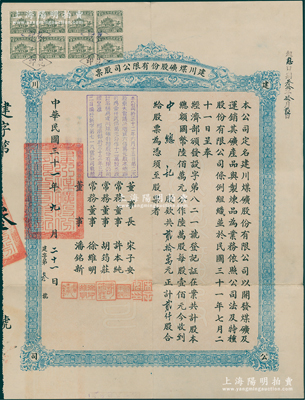 建川煤礦股份有限公司股票
建
川
公
司
本公司定名建川煤礦股份有限公司以開發煤礦及
運銷其礦產品與製煉品為業務依照公司法及特種
股份有限公司條例組織並於民國三十一年七月二
十一日呈奉
經濟部頒發設字第八二一號登記証在案共計股本
總額國幣陸佰萬元分作陸萬股每股壹佰元今收到
給股票為憑須至股票者
董事長 宋子安
常務董事 許本純
常務董事 胡筠莊
常務董事 徐維明
董事 潘銘新
中華民國三十一年九月二十一日
建字第
號
上海陽明拍賣